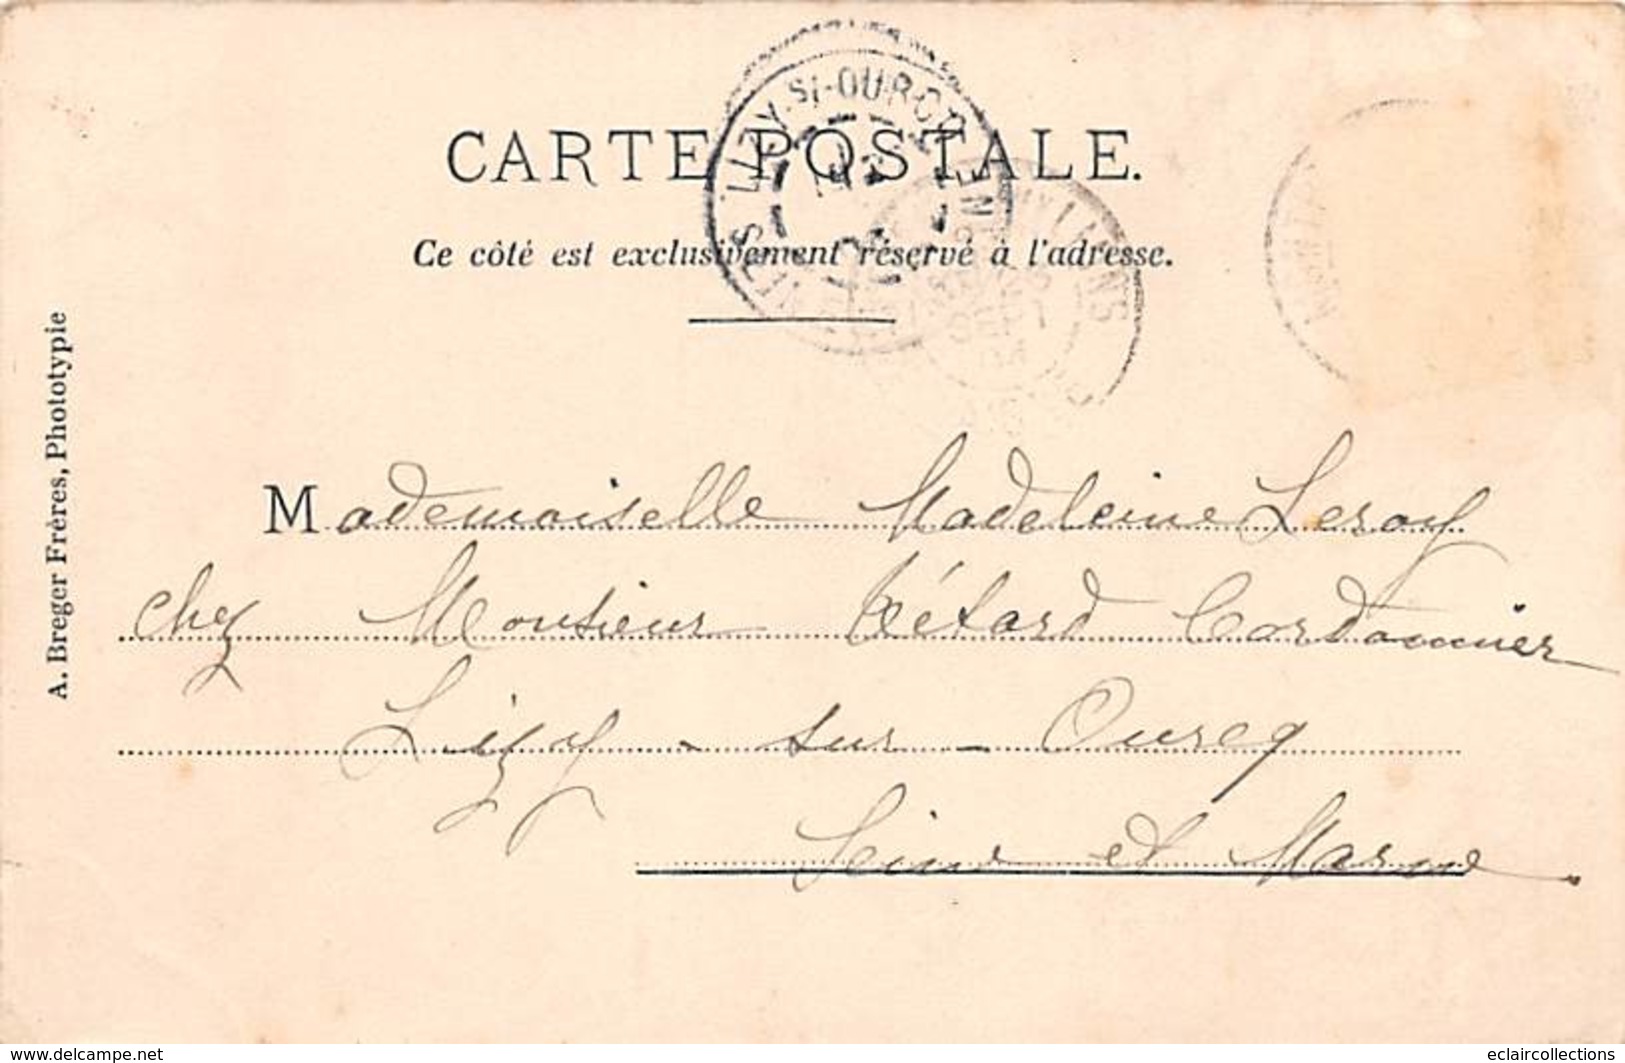 CARTE POSTALE.
Ce côté est exclusivement réservé à l'adresse.
A. Breger Frères, Phototypie
LIZY-St-OURCQ
SEPT
04
Mademoiselle Madeleine Leroy
chez Monsieur Bétard Cordonnier
Lizy - sur - Ourcq
Seine et Marne
www.delcampe.net
eclaircollections